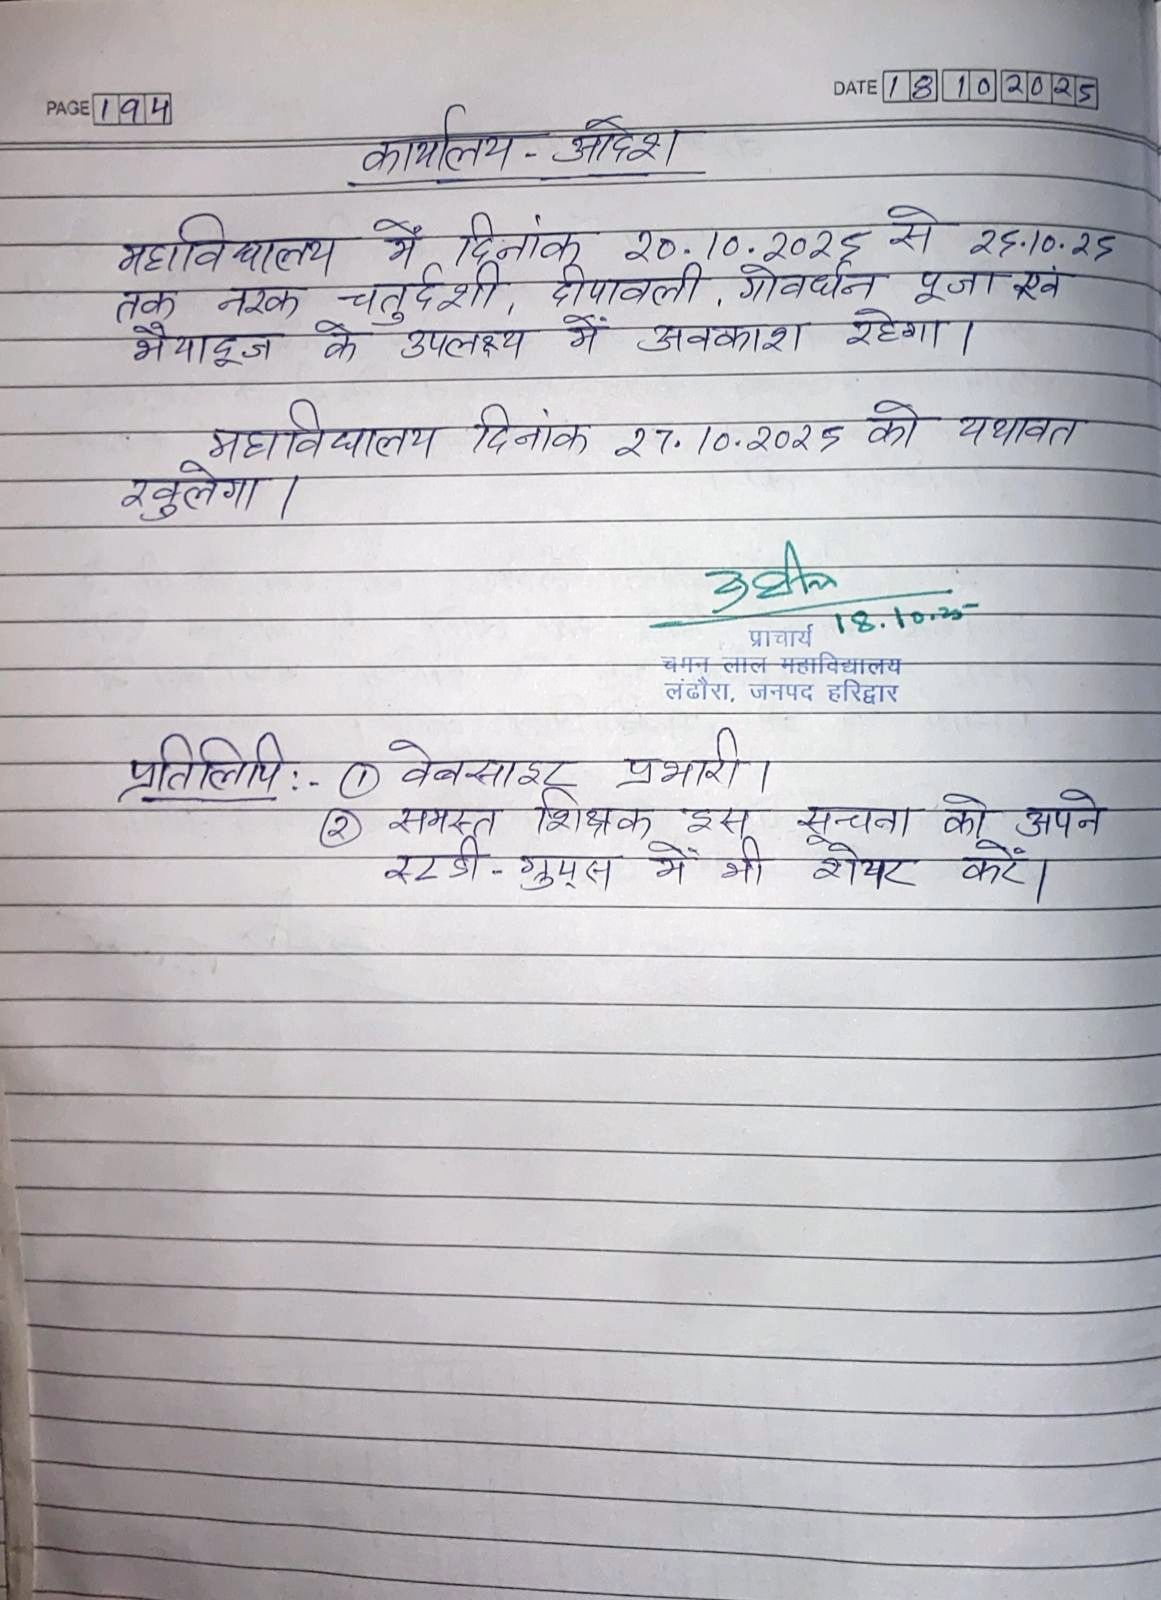 PAGE 194
DATE 18 10 2025
कार्यालय - आदेश
महाविद्यालय में दिनांक 20.10.2025 से 25.10.25
तक नरक चतुर्दशी, दीपावली, गोवर्धन पूजा एवं
भैयादूज के उपलक्ष्य में अवकाश रहेगा।
महाविद्यालय दिनांक 27.10.2025 को यथावत
खुलेगा।
18.10.25
प्राचार्य
चमन लाल महाविद्यालय
लंढौरा, जनपद हरिद्वार
प्रतिलिपि :- ① वेबसाइट प्रभारी।
② समस्त शिक्षक इस सूचना को अपने
स्टडी - ग्रुप्स में भी शेयर करें।